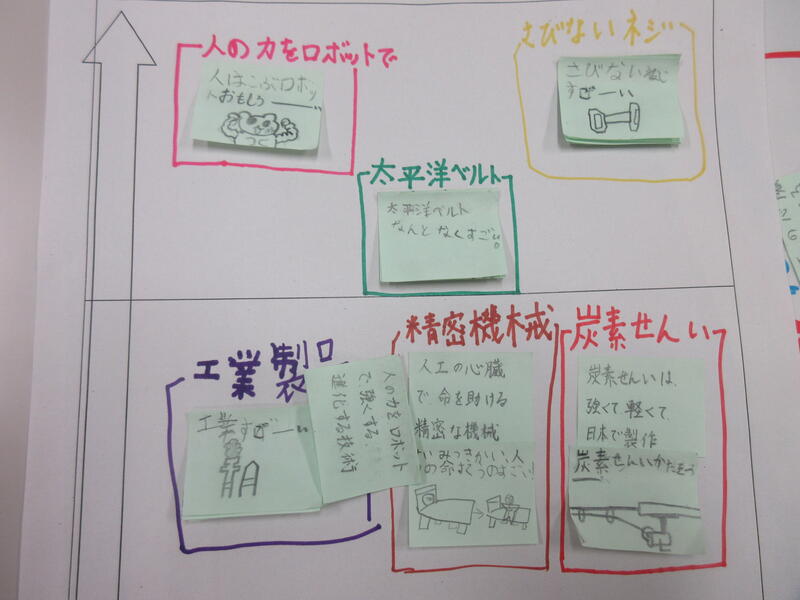 人の力をロボットで
人はこぶロボッ
トおもしろーーい
さびないネジ
さびないねじ
すごーい
太平洋ベルト
太平洋ベルト
なんとなくすごい。
工業製品
工業すごーい
人の力をロボット
で、強くする、
進化する技術
精密機械
人工の心臓
で、命を助ける
精密な機械
炭素せんい
炭素せんいは、
強くて軽くて、
日本で製作
炭素せんいかたをつ